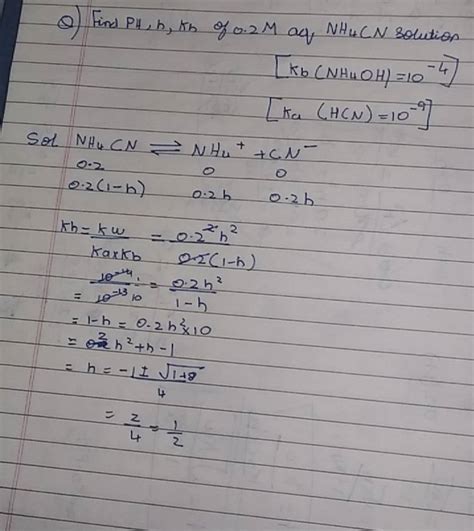 Q) Find PH, h, Kh of 0.2M aq NH4CN solution
[Kb (NH4OH) = 10^-4]
[Ka (HCN) = 10^-9]
Sol NH4CN ⇌ NH4+ + CN-
0.2 0 0
0.2(1-h) 0.2h 0.2h
Kh = Kw / Ka×Kb = 0.2^2 h^2 / 0.2(1-h)
= 10^-14 1 / 10^-13 10 = 0.2h^2 / 1-h
= 1-h = 0.2h^2×10
= 2 h^2+h-1
= h = -1±√1+8 / 4
= 2/4 = 1/2